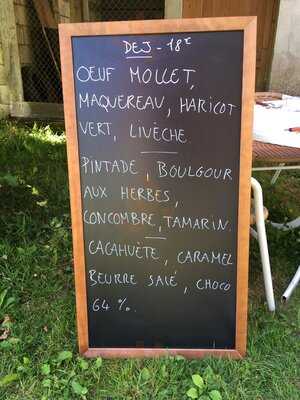 DEJ - 18€
OEUF MOLLET,
MAQUEREAU, HARICOT
VERT, LIVÈCHE
PINTADE, BOULGOUR
AUX HERBES,
CONCOMBRE, TAMARIN.
CACAHUÈTE, CARAMEL
BEURRE SALÉ, CHOCO
64 %.